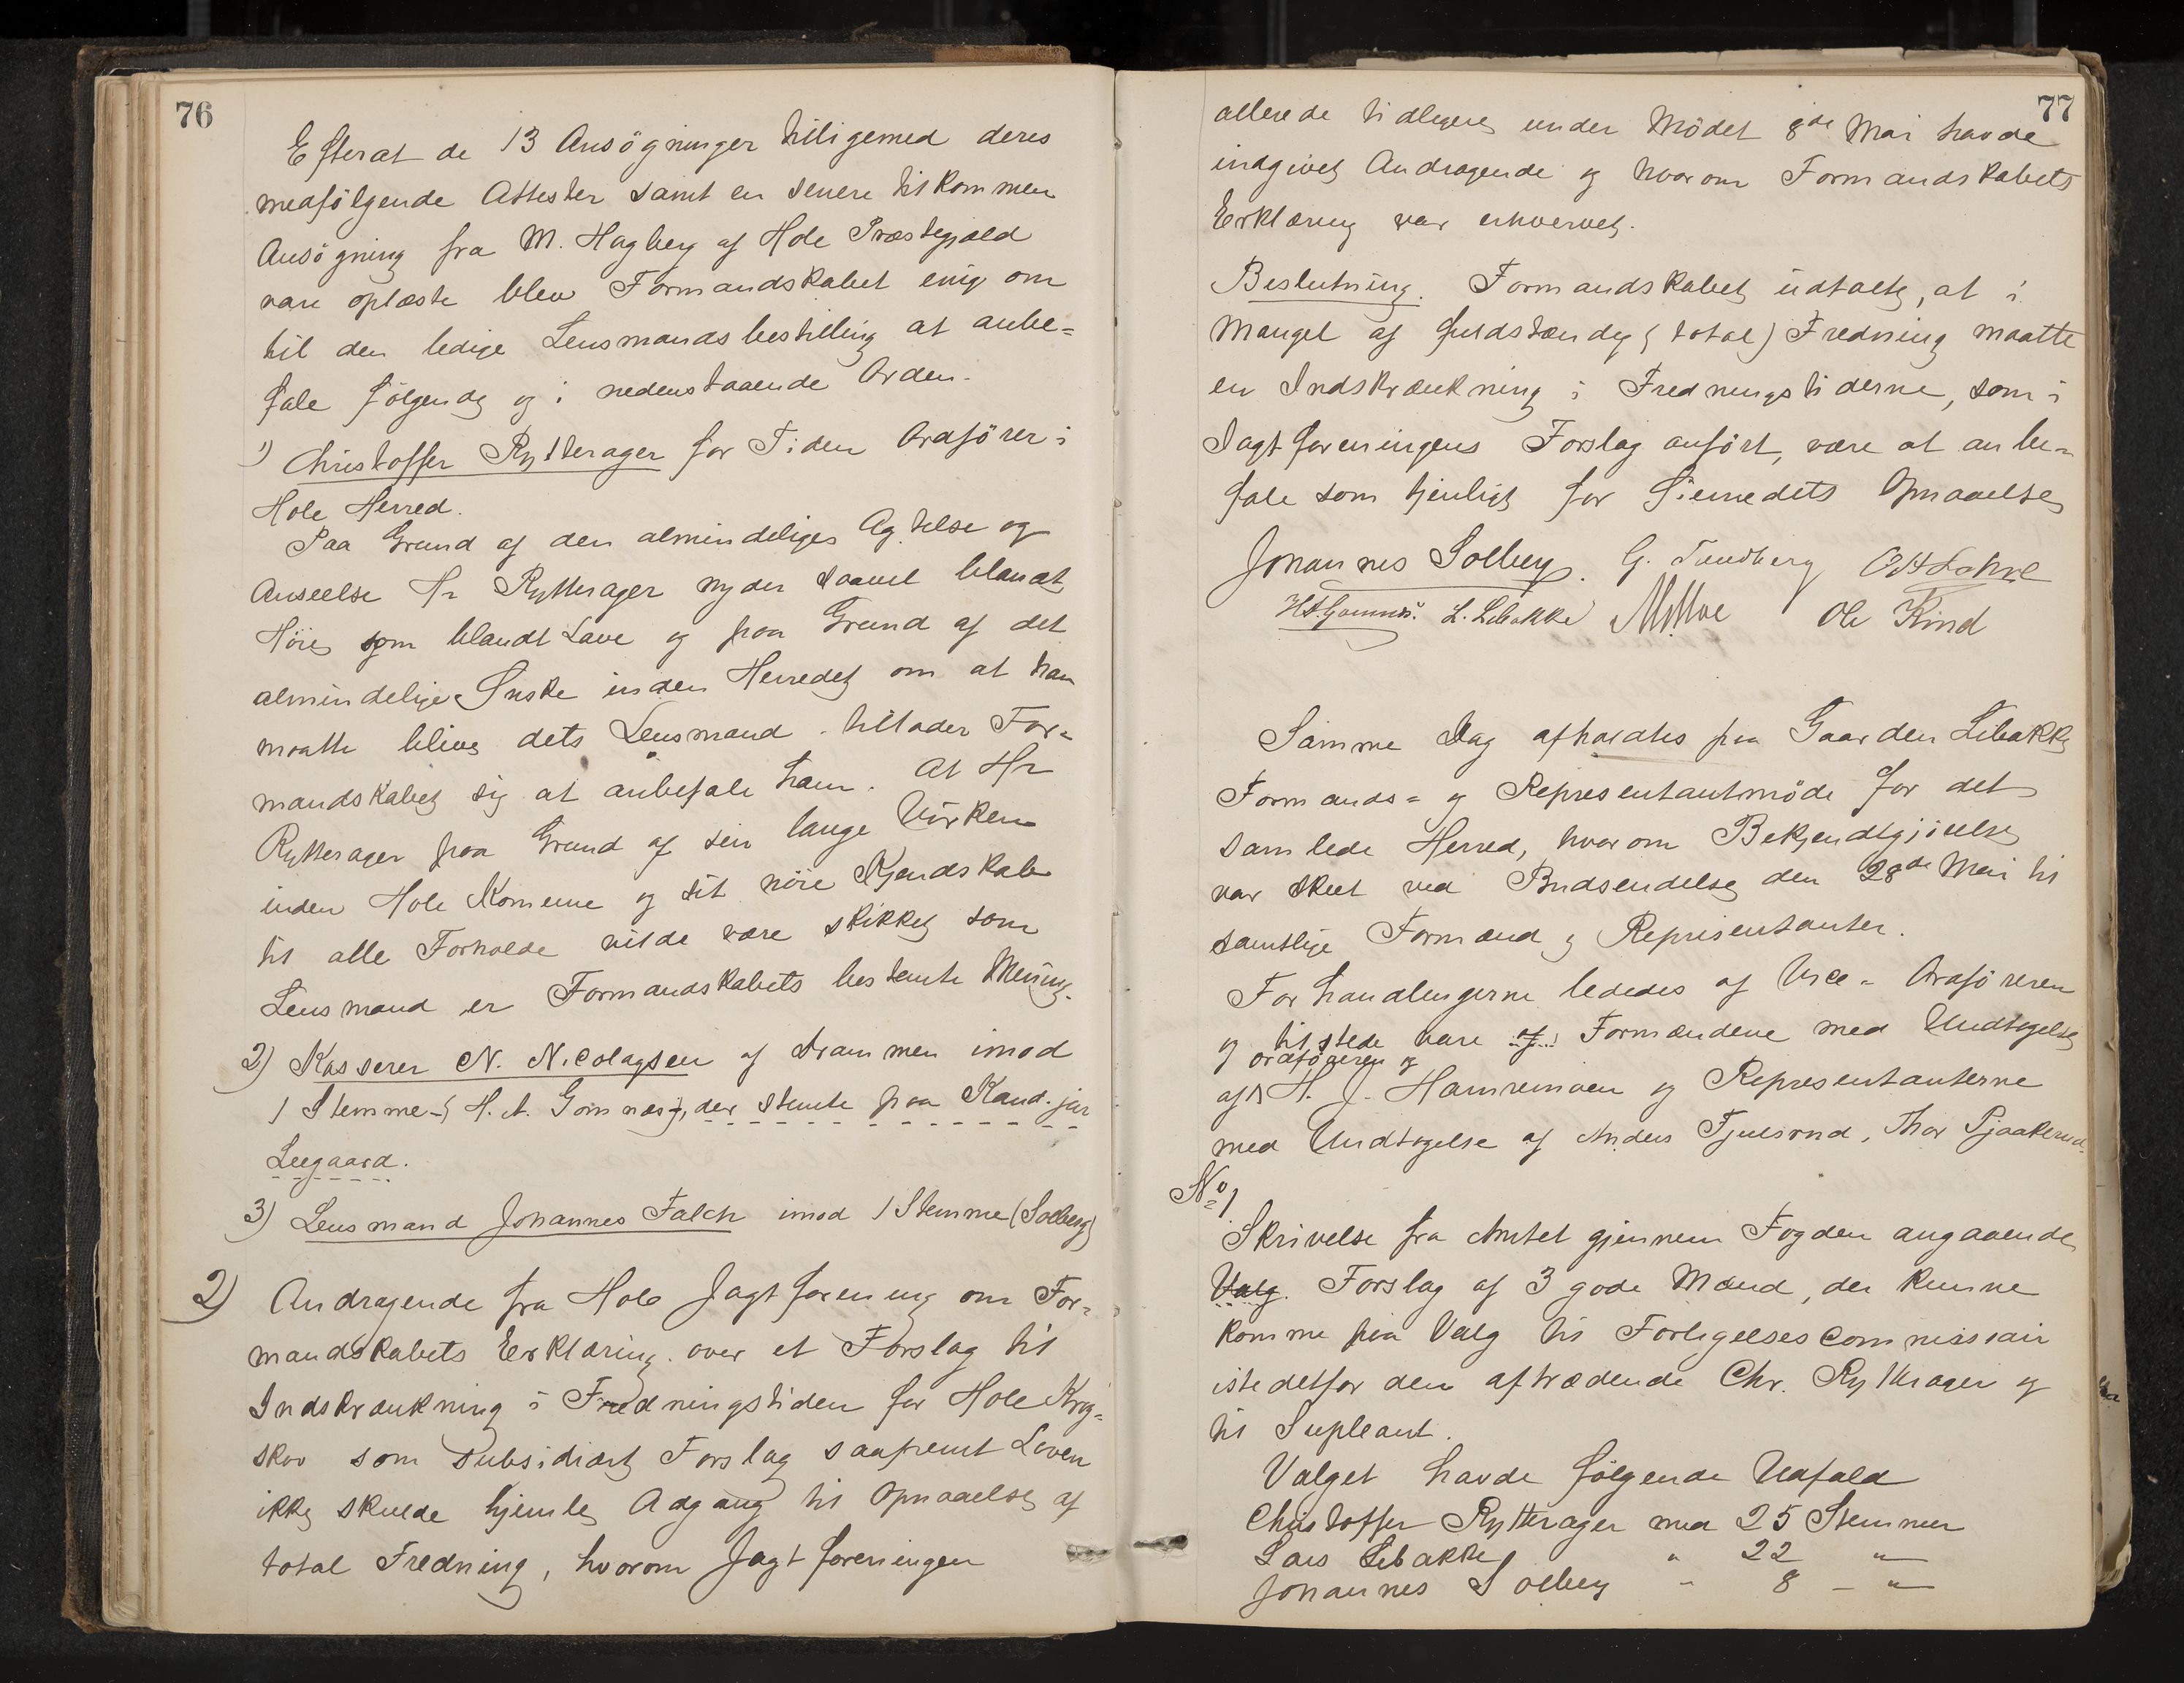 76
Efterat de 13 Ansögninger tilligemed deres
medfölgende Attester samt en senere tilkommen
Ansögning fra M. Hagberg af Hole Præstegjæld
vare oplæste blev Formandskabet enig om
til den ledige Lensmandsbestilling at anbe=
fale følgende og i nedenstaaende Orden.
1) Christoffer Rytterager for Tiden Ordförer i
Hole Herred.
Paa Grund af den almindelige Agtelse og
Anseelse Hr Rytterager nyder saavel blandt
Höie som blandt Lave og paa Grund af det
almindelige Önske inden Herredet om at han
maatte blive dets Lensmand tillader For=
mandskabet sig at anbefale ham. At Hr
Rytterager paa Grund af sin lange Virken
inden Hole Komune og sit nöie Kjendskab
til alle Forholde vilde være skikket som
Lensmand er Formandskabets bestemte Mening.
2) Kasserer N. Nicolaysen af Drammen imod
1 Stemme (H. A. Gomnæs), der stemte paa Kand. jur
Leegaard.
3) Lensmand Johannes Falch imod 1 Stemme (Solberg)
2) Andragende fra Hole Jagtforening om For=
mandskabets Erklæring over et Forslag til
Indskrænkning i Fredningstiden for Hole Krog=
skov som subsidiært Forslag saafremt Loven
ikke skulde hjemle Adgang til Opnaaelse af
total Fredning, hvorom Jagtforeningen
77
allerede tidligere under Mödet 8de Mai havde
indgivet Andragende og hvorom Formandskabets
Erklæring var erhvervet.
Beslutning. Formandskabet udtalte, at i
Mangel af fuldstændig (total) Fredning maatte
en Indskrænkning i Fredningstiderne, som i
Jagtforeningens Forslag anfört, være at anbe=
fale som tjenligt for Öiemedets Opnaaelse
Johannes Solberg. G. Sundberg
L. Libakke Ole Kind
Samme Dag afholdtes paa Gaarden Libakke
Formands= og Representantmöde for det
samlede Herred, hvorom Bekjendtgjörelse
var skeet ved Budsendelse den 28de Mai til
samtlige Formænd og Representanter.
Forhandlingerne lededes af Vice=Ordföreren
og tilstede vare af Formændene med Undtagelse
ordföreren og
af H. J. Hamremoen og Representanterne
med Undtagelse af Anders Fjulsrud, Thor Pjaakerud
No 1
Skrivelse fra Amtet gjennem Fogden angaaende
Valg. Forslag af 3 gode Mænd, der kunne
komme paa Valg til Forligelsescommissair
istedetfor den aftrædende Chr. Rytterager og
til Supleant.
Valget havde fölgende Udfald
Christoffer Rytterager med 25 Stemmer
Lars Libakke " 22 "
Johannes Solberg " 8 - "